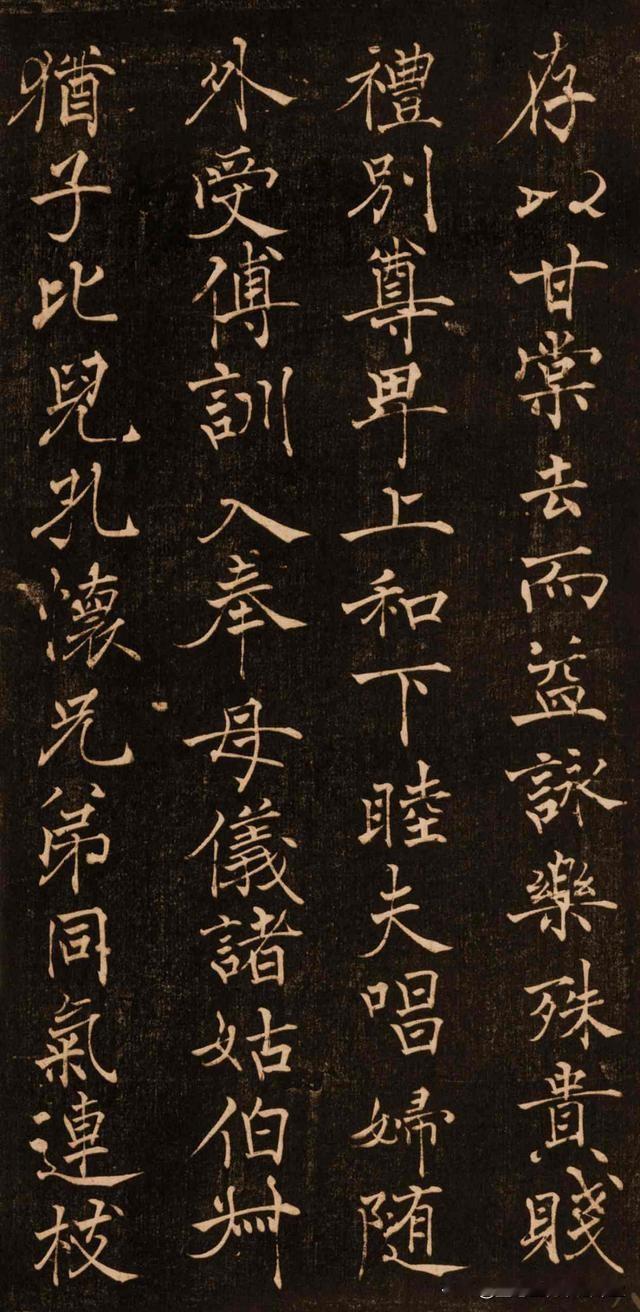 存以甘棠去而益詠樂殊貴賤
禮別尊卑上和下睦夫唱婦随
外受傅訓入奉母儀諸姑伯叔
猶子比兒孔懷兄弟同氣連枝